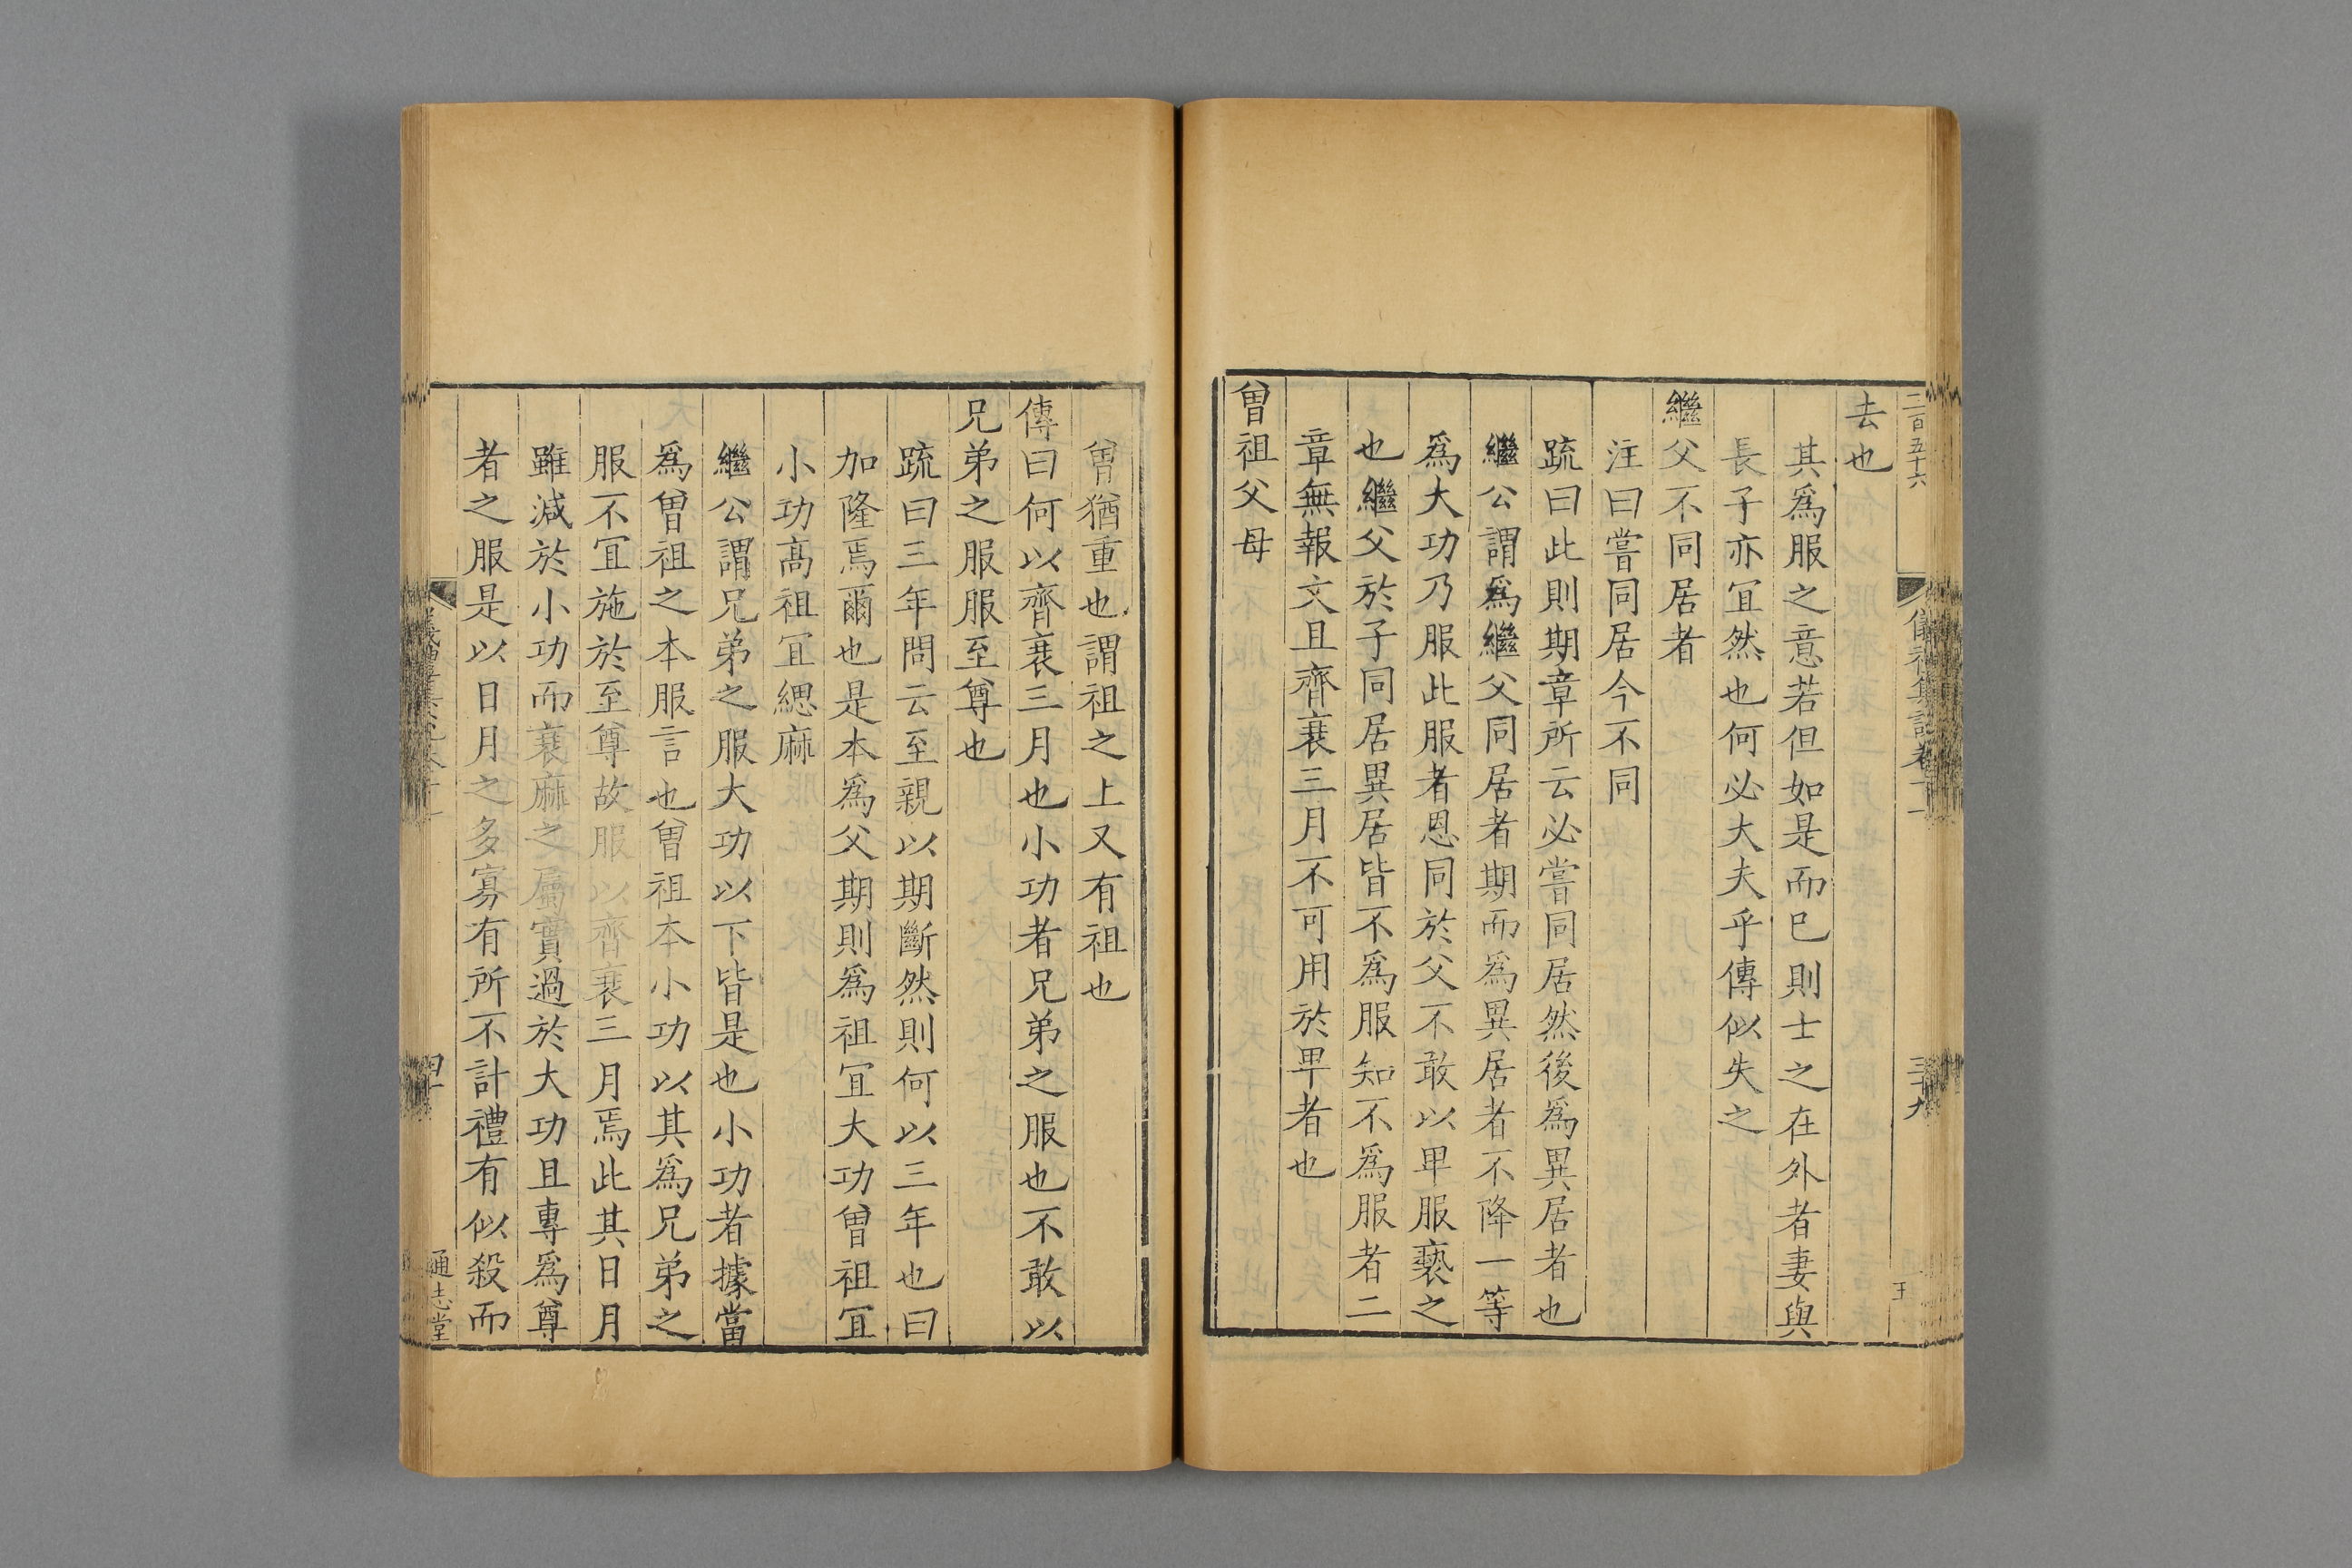 二百五十六
儀禮集説卷十一
三十九
去也
其爲服之意若但如是而已則士之在外者妻與
長子亦宜然也何必大夫乎傳似失之
繼父不同居者
注曰嘗同居今不同
疏曰此則期章所云必嘗同居然後爲異居者也
繼公謂爲繼父同居者期而爲異居者不降一等
爲大功乃服此服者恩同於父不敢以卑服褻之
也繼父於子同居異居皆不爲服知不爲服者二
章無報文且齊衰三月不可用於卑者也
曾祖父母
曾猶重也謂祖之上又有祖也
傳曰何以齊衰三月也小功者兄弟之服也不敢以
兄弟之服服至尊也
疏曰三年問云至親以期斷然則何以三年也曰
加隆焉爾也是本爲父期則爲祖宜大功曾祖宜
小功髙祖宜緦麻
繼公謂兄弟之服大功以下皆是也小功者據當
爲曾祖之本服言也曾祖本小功以其爲兄弟之
服不宜施於至尊故服以齊衰三月焉此其日月
雖減於小功而衰麻之屬實過於大功且專爲尊
者之服是以日月之多寡有所不計禮有似殺而
四十
通志堂